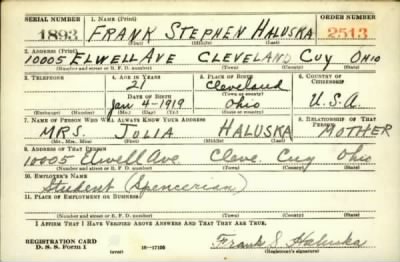 SERIAL NUMBER 1. NAME (Print) ORDER NUMBER
1893 FRANK STEPHEN HALUSKA 2513
(First) (Middle) (Last)
2. ADDRESS (Print)
10005 ELWELL AVE CLEVELAND CUY OHIO
(Number and street or R. F. D. number) (Town) (County) (State)
3. TELEPHONE 4. AGE IN YEARS 5. PLACE OF BIRTH 6. COUNTRY OF CITIZENSHIP
21 Cleveland
DATE OF BIRTH (Town or county)
Jan 4-1919 Ohio U.S.A.
(Exchange) (Number) (Mo.) (Day) (Yr.) (State or country)
7. NAME OF PERSON WHO WILL ALWAYS KNOW YOUR ADDRESS 8. RELATIONSHIP OF THAT PERSON
MRS. JULIA HALUSKA MOTHER
(Mr., Mrs., Miss) (First) (Middle) (Last)
9. ADDRESS OF THAT PERSON
10005 Elwell Ave Cleve. Cuy Ohio
(Number and street or R. F. D. number) (Town) (County) (State)
10. EMPLOYER'S NAME
Student (Spencerian)
11. PLACE OF EMPLOYMENT OR BUSINESS
(Number and street or R. F. D. number) (Town) (County) (State)
I AFFIRM THAT I HAVE VERIFIED ABOVE ANSWERS AND THAT THEY ARE TRUE.
REGISTRATION CARD
D. S. S. Form 1 (over) 16—17105 Frank S. Haluska
(Registrant's signature)